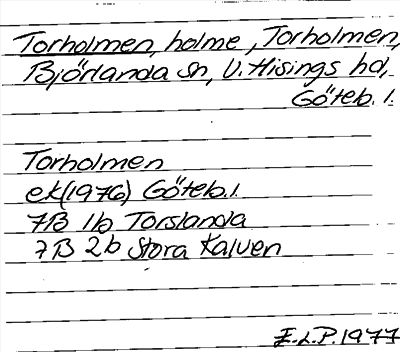 Torholmen, holme, Torholmen,
Björlanda sn, V. Hisings hd,
Göteb. l.
Torholmen
ek(1976) Göteb. l.
7B 1b Torslanda
7B 2b Stora Kalven
E.L.P. 1977